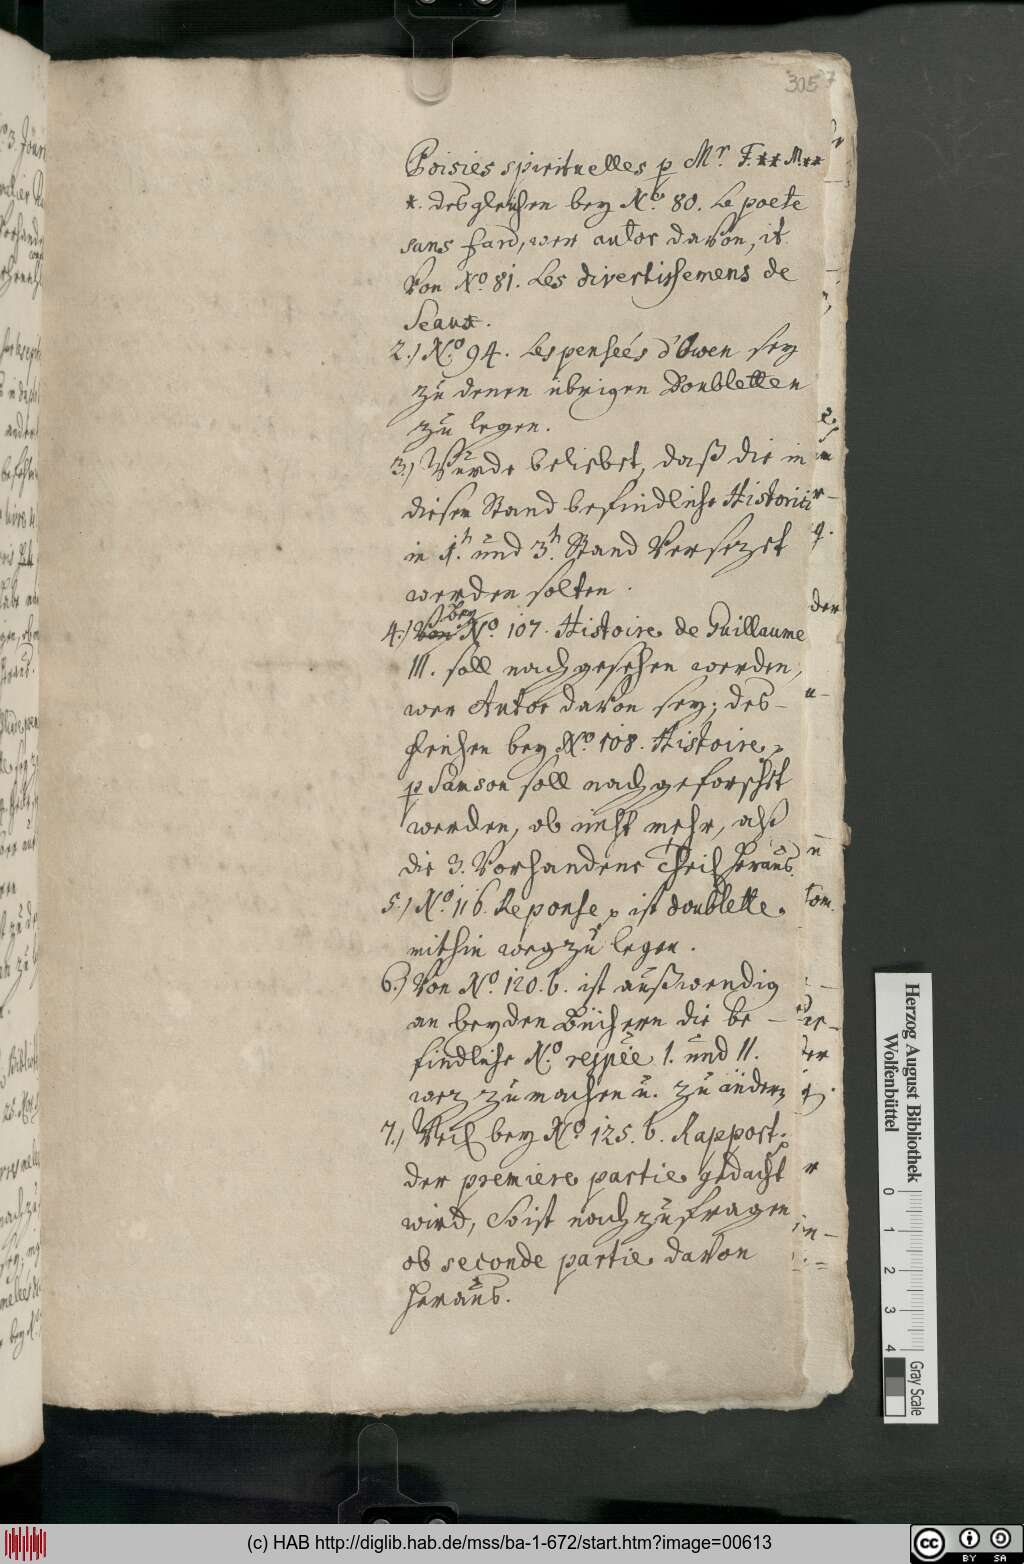 305
Poisies spirituelles p Mr. F.** M.**
*. desgleichen bey No. 80. Le poete
sans fard, wer autor davon, it.
Von No. 81. Les divertissemens de
Seaux.
2.) No. 94. Les penseés d'Owen sey
zu denen übrigen Doubletten
zu legen.
3.) Würde beliebet, daß die in
diesen Stand befindliche Historici
in 1.n und 3.n Stand versezet
werden solten.
4.) bey No. 107. Histoire de Guillaume
III. soll nachgesehen werden,
wer Autor davon sey; des-
gleichen bey No. 108. Histoire
p Samson soll nachgeforschet
werden, ob nicht mehr, alß
die 3. vorhandene Theil heraus.
5.) No. 116. Reponse p ist doublette
mithin wegzulegen.
6.) Von No. 120. b. ist außwendig
an beyden Büchern die be-
findliche No. respée I. und II.
weg zu machen u. zu ändern
7.) Weil bey No. 125. b. Rapport p
der premiere partie gedacht
wird, So ist nachzufragen
ob seconde partie davon
heraus.
Herzog August Bibliothek
Wolfenbüttel
0 1 2 3 4
Gray Scale
(c) HAB http://diglib.hab.de/mss/ba-1-672/start.htm?image=00613
cc BY SA